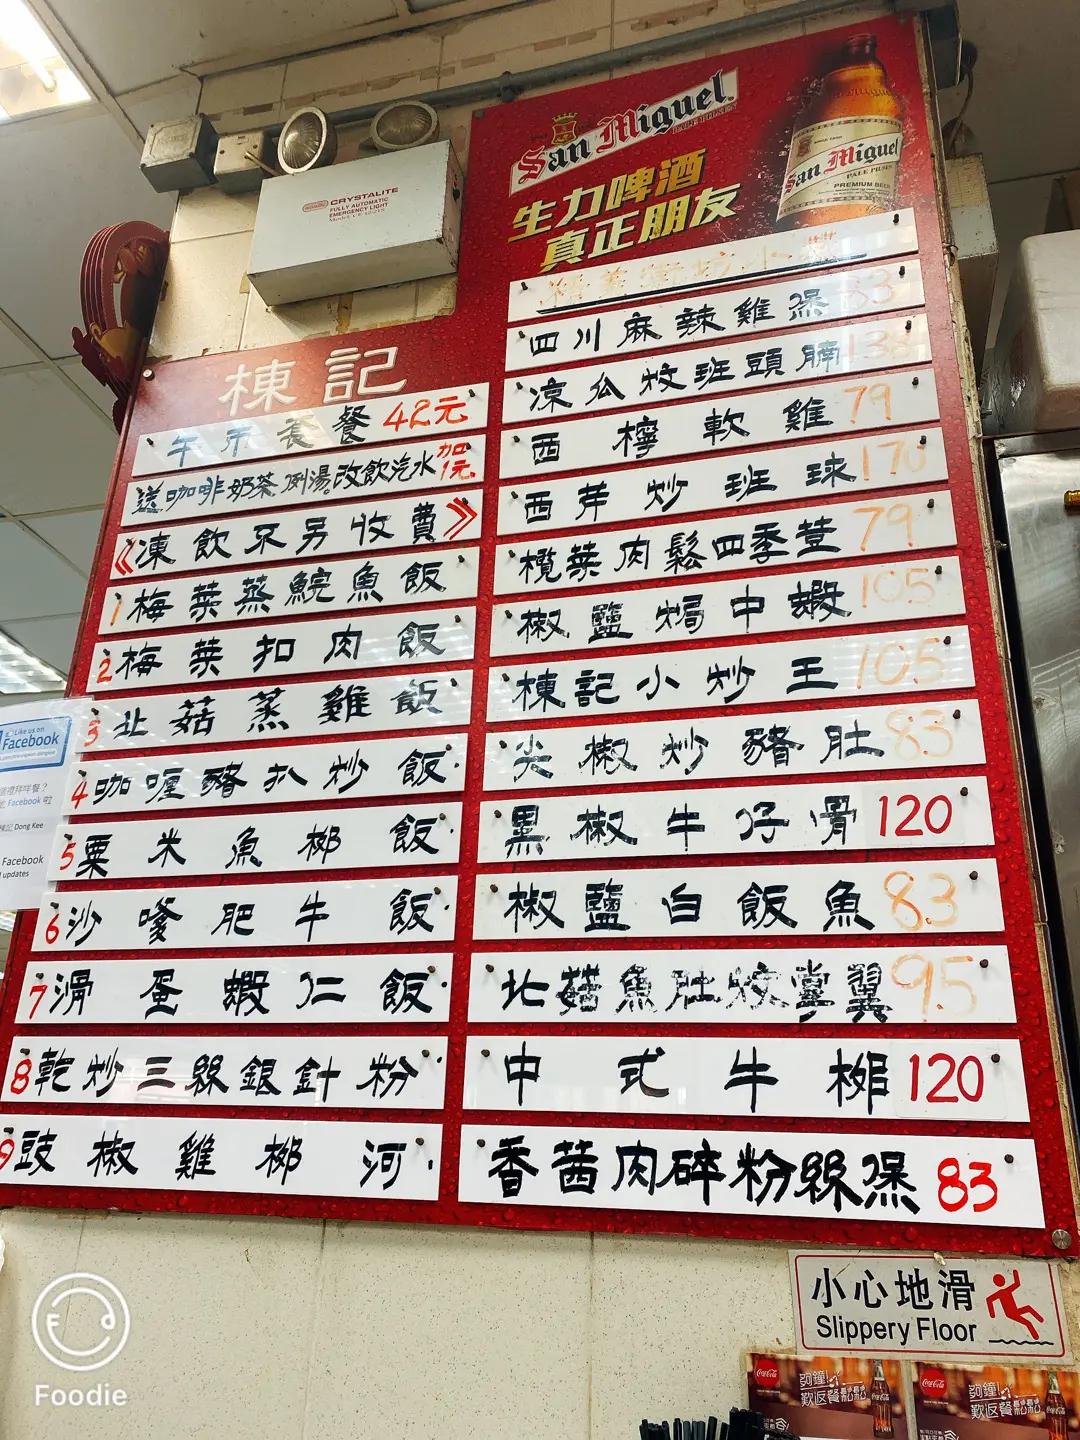 San Miguel
PALE PILSEN
生力啤酒
真正朋友
SINCE 1890
San Miguel
PALE PILSEN
PREMIUM BEER
CRYSTALITE
FULLY AUTOMATIC
EMERGENCY LIGHT
棟記
午市套餐 42元
送咖啡奶茶例湯改飲汽水加1元
《凍飲不另收費》
1梅菜蒸鯇魚飯
2梅菜扣肉飯
3北菇蒸雞飯
4咖喱豬扒炒飯
5粟米魚柳飯
6沙嗲肥牛飯
7滑蛋蝦仁飯
8乾炒三絲銀針粉
9豉椒雞柳河
四川麻辣雞煲 83
涼瓜炆班頭腩
西檸軟雞 79
西芹炒班球 170
欖菜肉鬆四季荳 79
椒鹽焗中蝦 105
棟記小炒王 105
尖椒炒豬肚 83
黑椒牛仔骨 120
椒鹽白飯魚 83
北菇魚肚炆掌翼 95
中式牛柳 120
香茜肉碎粉絲煲 83
Like us on
Facebook
Facebook 啦
棟記 Dong Kee
Facebook
updates
小心地滑
Slippery Floor
Coca-Cola
夠鐘!
歎返餐鬆鬆
Coca-Cola
夠鐘!
歎返餐鬆鬆
Foodie